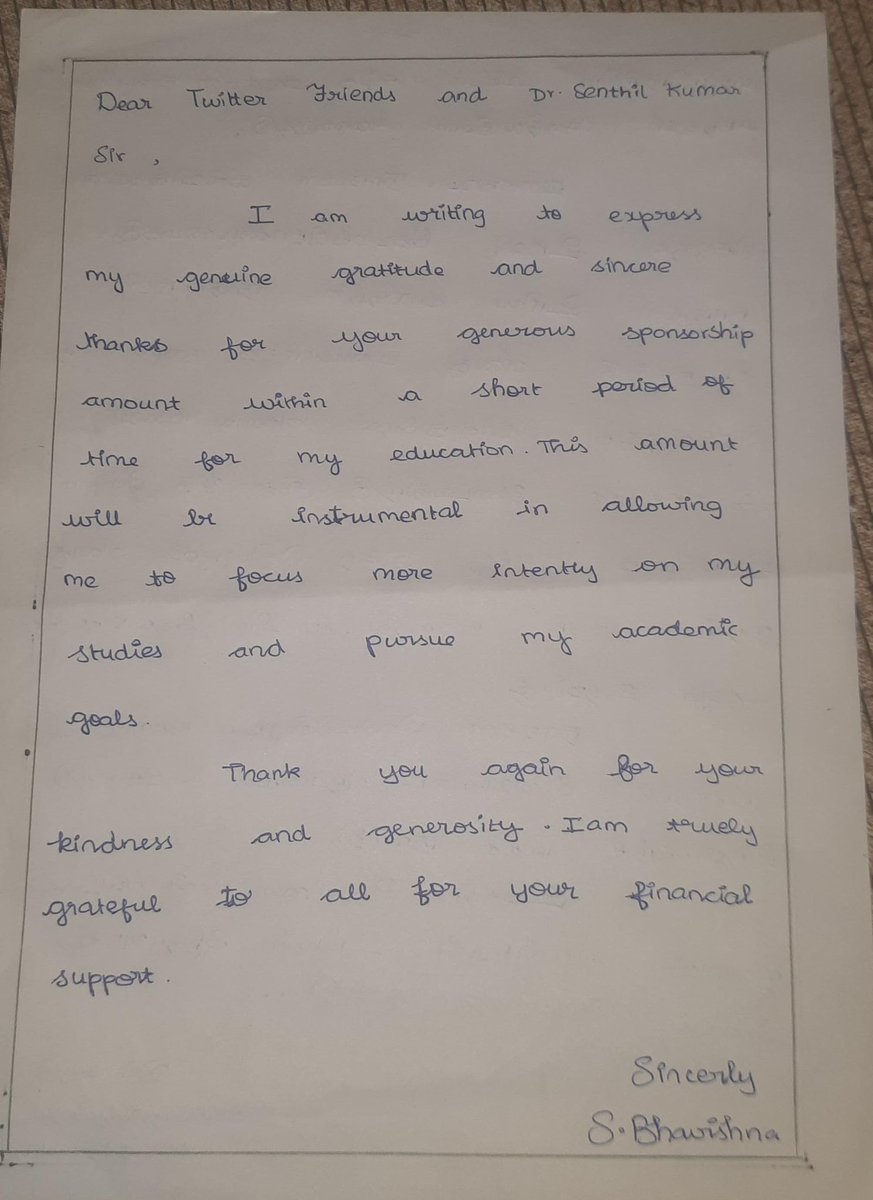 Dear Twitter Friends and Dr. Senthil Kumar
Sir ,
I am writing to express
my genuine gratitude and sincere
thanks for your generous sponsorship
amount within a short period of
time for my education. This amount
will be instrumental in allowing
me to focus more intently on my
studies and pursue my academic
goals.
Thank you again for your
kindness and generosity. I am truely
grateful to all for your financial
support.
Sincerly
S. Bhavishna